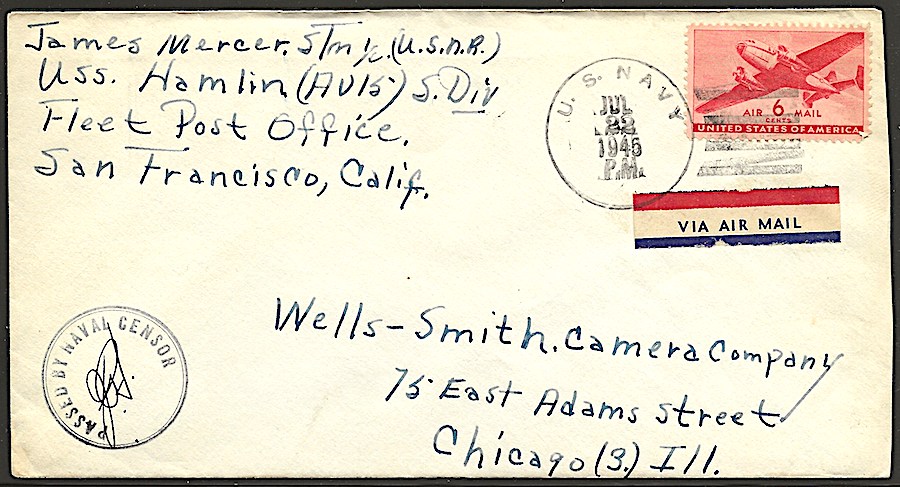 James Mercer. STm 1/c. (U.S.N.R.)
USS. Hamlin (AV15) S. Div
Fleet Post Office.
San Francisco, Calif.
U. S. NAVY
JUL
22
1945
P.M.
AIR 6 MAIL
CENTS
UNITED STATES OF AMERICA
VIA AIR MAIL
PASSED BY NAVAL CENSOR
Wells-Smith. Camera Company
75 East Adams Street
Chicago (3.) Ill.